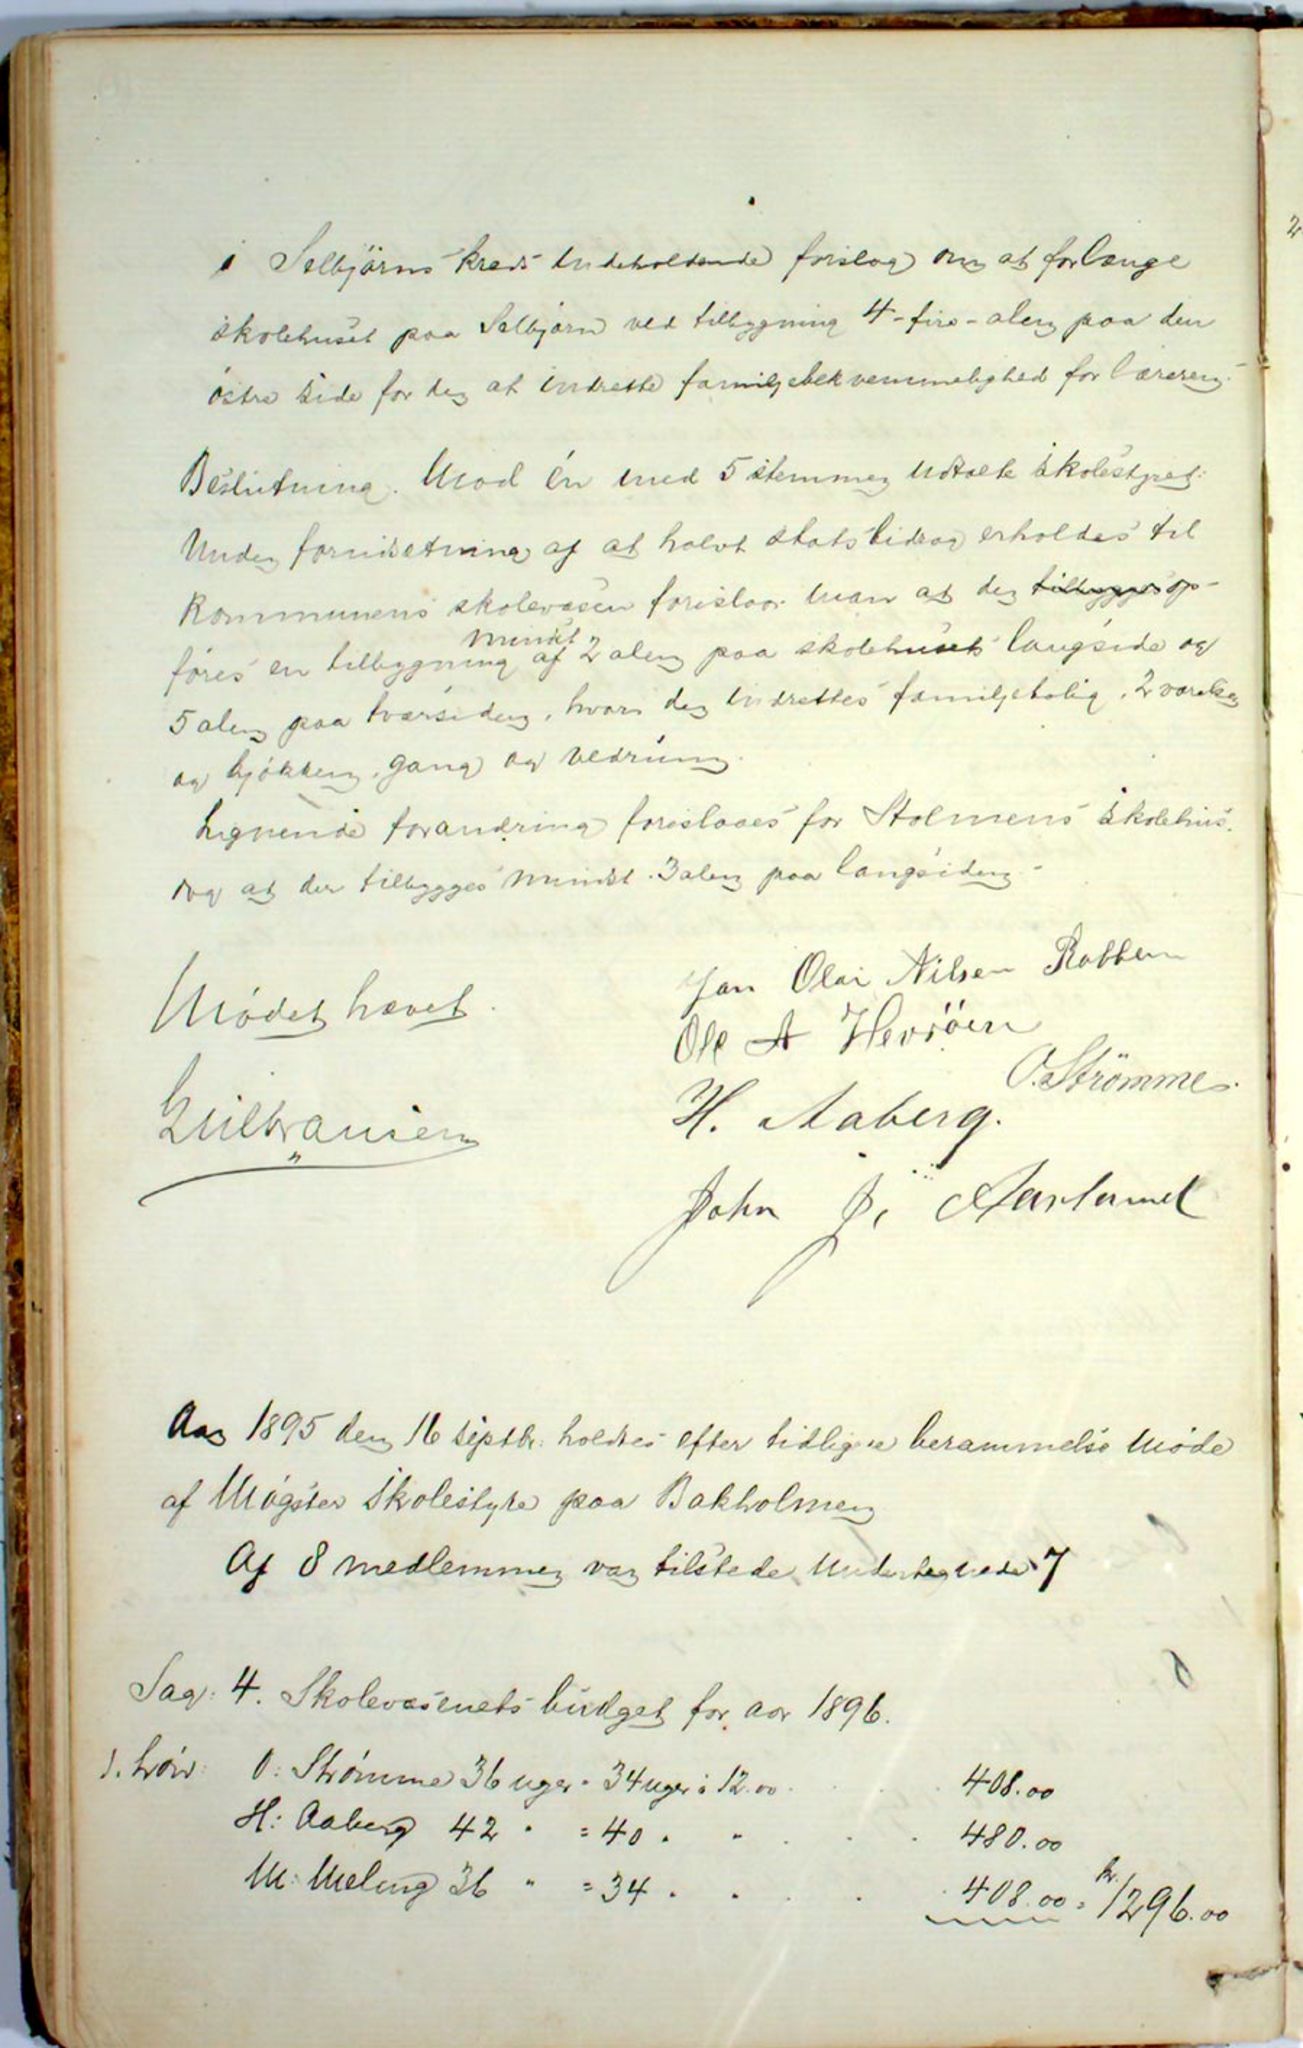 i Selbjörns kreds indeholdende forslag om at forlænge
skolehuset paa Selbjørn ved tilbygning 4-fire-alen paa den
östre side for der at indrette familjebekvemmelighed for læreren.
Beslutning. Mod én med 5 stemmer udtalte skolestyret:
Under forudsetning af at halvt statsbidrag erholdes til
kommunens skolevæsen foreslaar man at der tilbygges op-
føres en tilbygning mindst af 2 alen paa skolehusets langside og
5 alen paa tværsiden, hvori der indrettes familjebolig, 2 værelser
og kjøkken, gang og vedrum.
Lignende forandring foreslaaes for Stolmens skolehus,
dog at der tilbygges mindst 3 alen paa langsiden.-
Mødet hævet.
Jan Olai Nilsen Rabben
Ole A Hevröen
O. Strömme.
H. Aaberg.
John J. Aarland
Aar 1895 den 16 septbr. holdtes efter tidligere berammelse møde
af Møgster skolestyre paa Bakholmen
Af 8 medlemmer var tilstede undertegnede 7
Sag: 4. Skolevæsenets budget for aar 1896.
1. Løn: O: Strømme 36 uger = 34 uger à 12.00 . . . 408.00
H: Aaberg 42 " = 40 " " . . . 480.00
M: Meling 36 " = 34 " " . . . 408.00 = kr. 1296.00